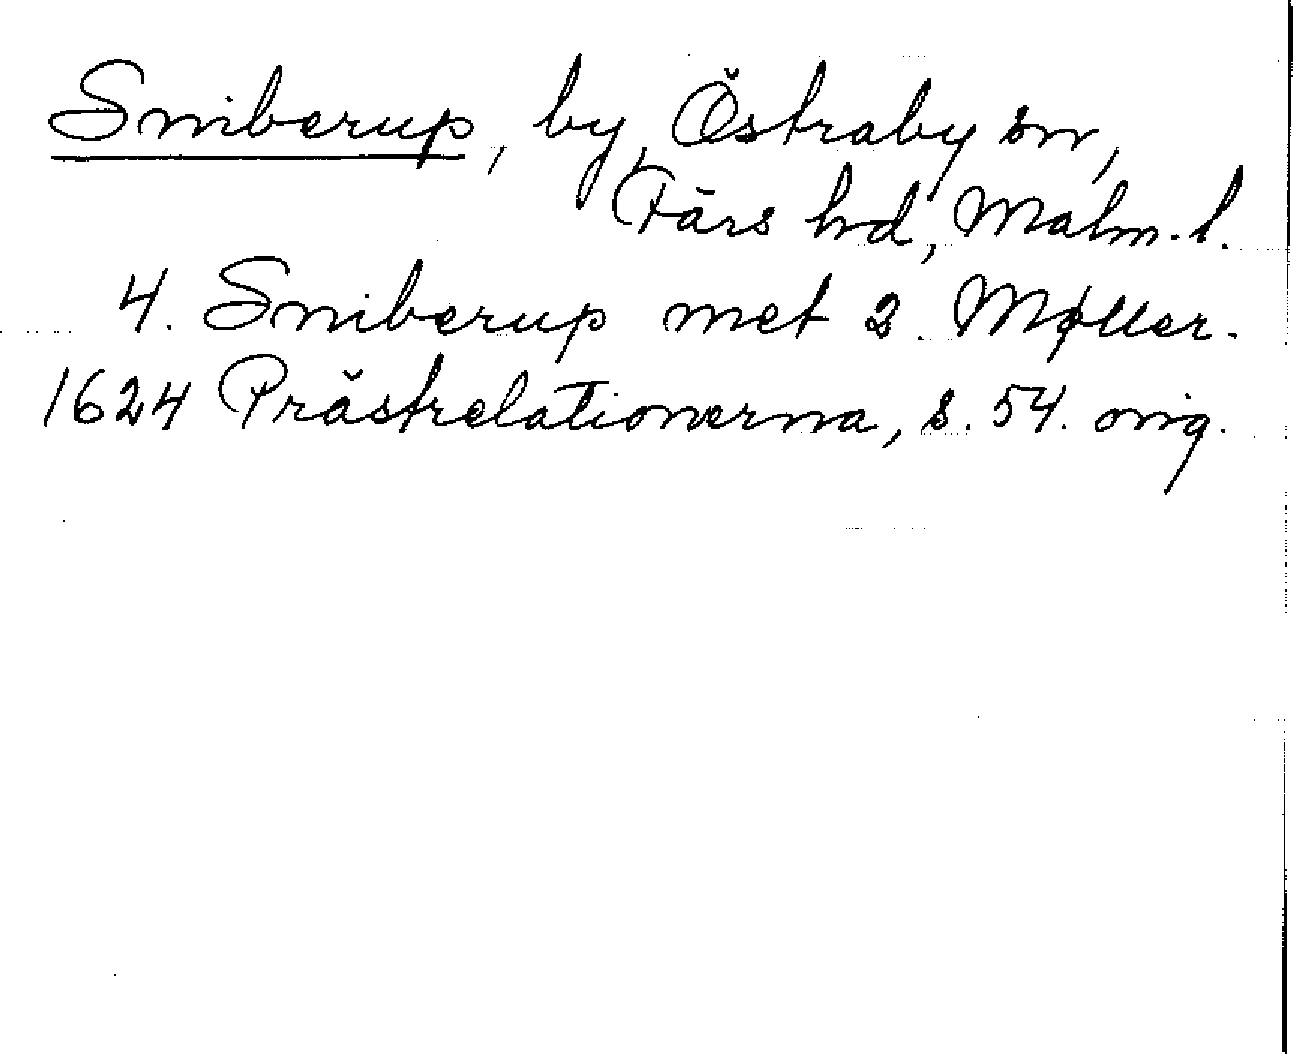 Sniberup, by, Östraby sn,
Färs hd, Malm. l.
4. Sniberup met 2. Møller.
1624 Prästrelationerna, s. 54. orig.